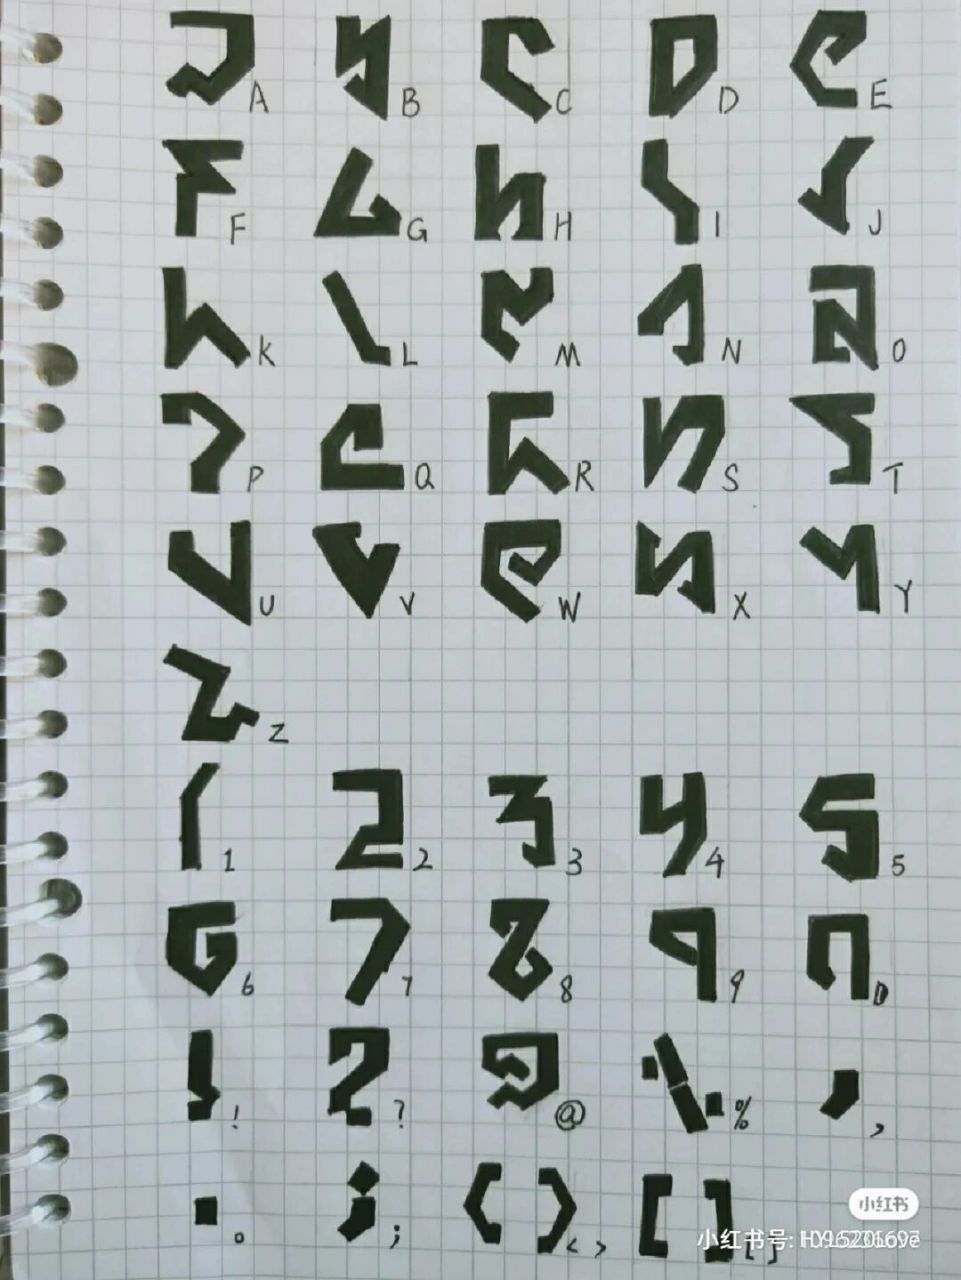 A B C D E
F G H I J
K L M N O
P Q R S T
U V W X Y
Z
1 2 3 4 5
6 7 8 9 0
! ? @ % ,
。 ; < > [ ]
小红书
小红书号: